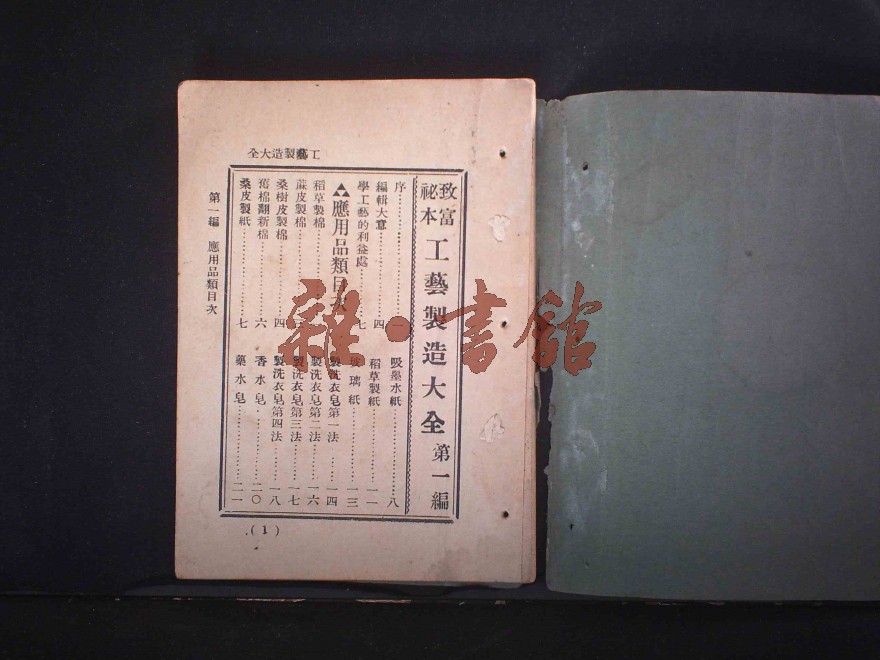 工藝製造大全
致富祕本 工藝製造大全 第一編
序……一
編輯大意……四
學工藝的利益處……七
應用品類目次
稻草製棉
蔴皮製棉……三
桑樹皮製棉……四
舊棉翻新棉……六
桑皮製紙……七
吸墨水紙……八
稻草製紙……一一
玻璃紙……一三
製洗衣皂第一法……一四
製洗衣皂第二法……一六
製洗衣皂第三法……一七
製洗衣皂第四法……一八
香水皂……二〇
藥水皂……二一
第一編 應用品類目次
(1)
雜·書館